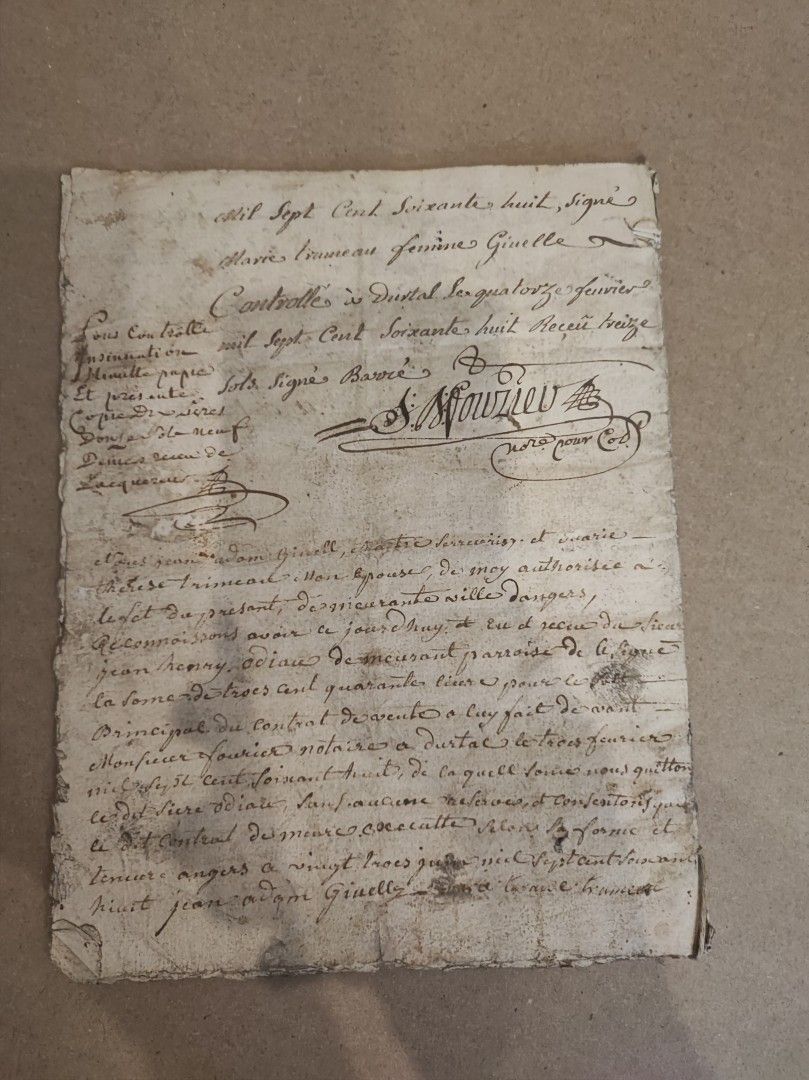 Mil Sept Cent Soixante huit, signé
Marie trameau femme Givelle
Controllé à Durtal Le quatorze feuvrier
mil Sept Cent Soixante huit Receü treize
sols, signé Barré
Pour Controlle
Insinuation
Minutte papie
Et présente
Copie
neuf
Deniers receu de
Lacquereur
J. N. Fourier
nore. pour Col.
Nous jean adam Givell, maitre Serrurier, et marie
thérèse trimeau Mon Epouse, de moy authorisée a
le fet du présant, demeurante ville dangers,
Reconnoissons avoir ce jourdhuy, et Eu et receu du Sieur
jean henry, odiau demeurant parroise de
la some de trois cent quarante livre pour le
Principal du contrat de vente a luy fait devant
Monsieur fourier notaire a durtal le trois feuvrier
mil sept cent soixant huit, de laquell some nous quitton
le dit siere odiau, sans aucune reserves, et consentons que
le dit contral demeure executte selon sa forme et
teneure angers a vingt trois juin mil sept cent soixant
huit jean adam Givelle trameau